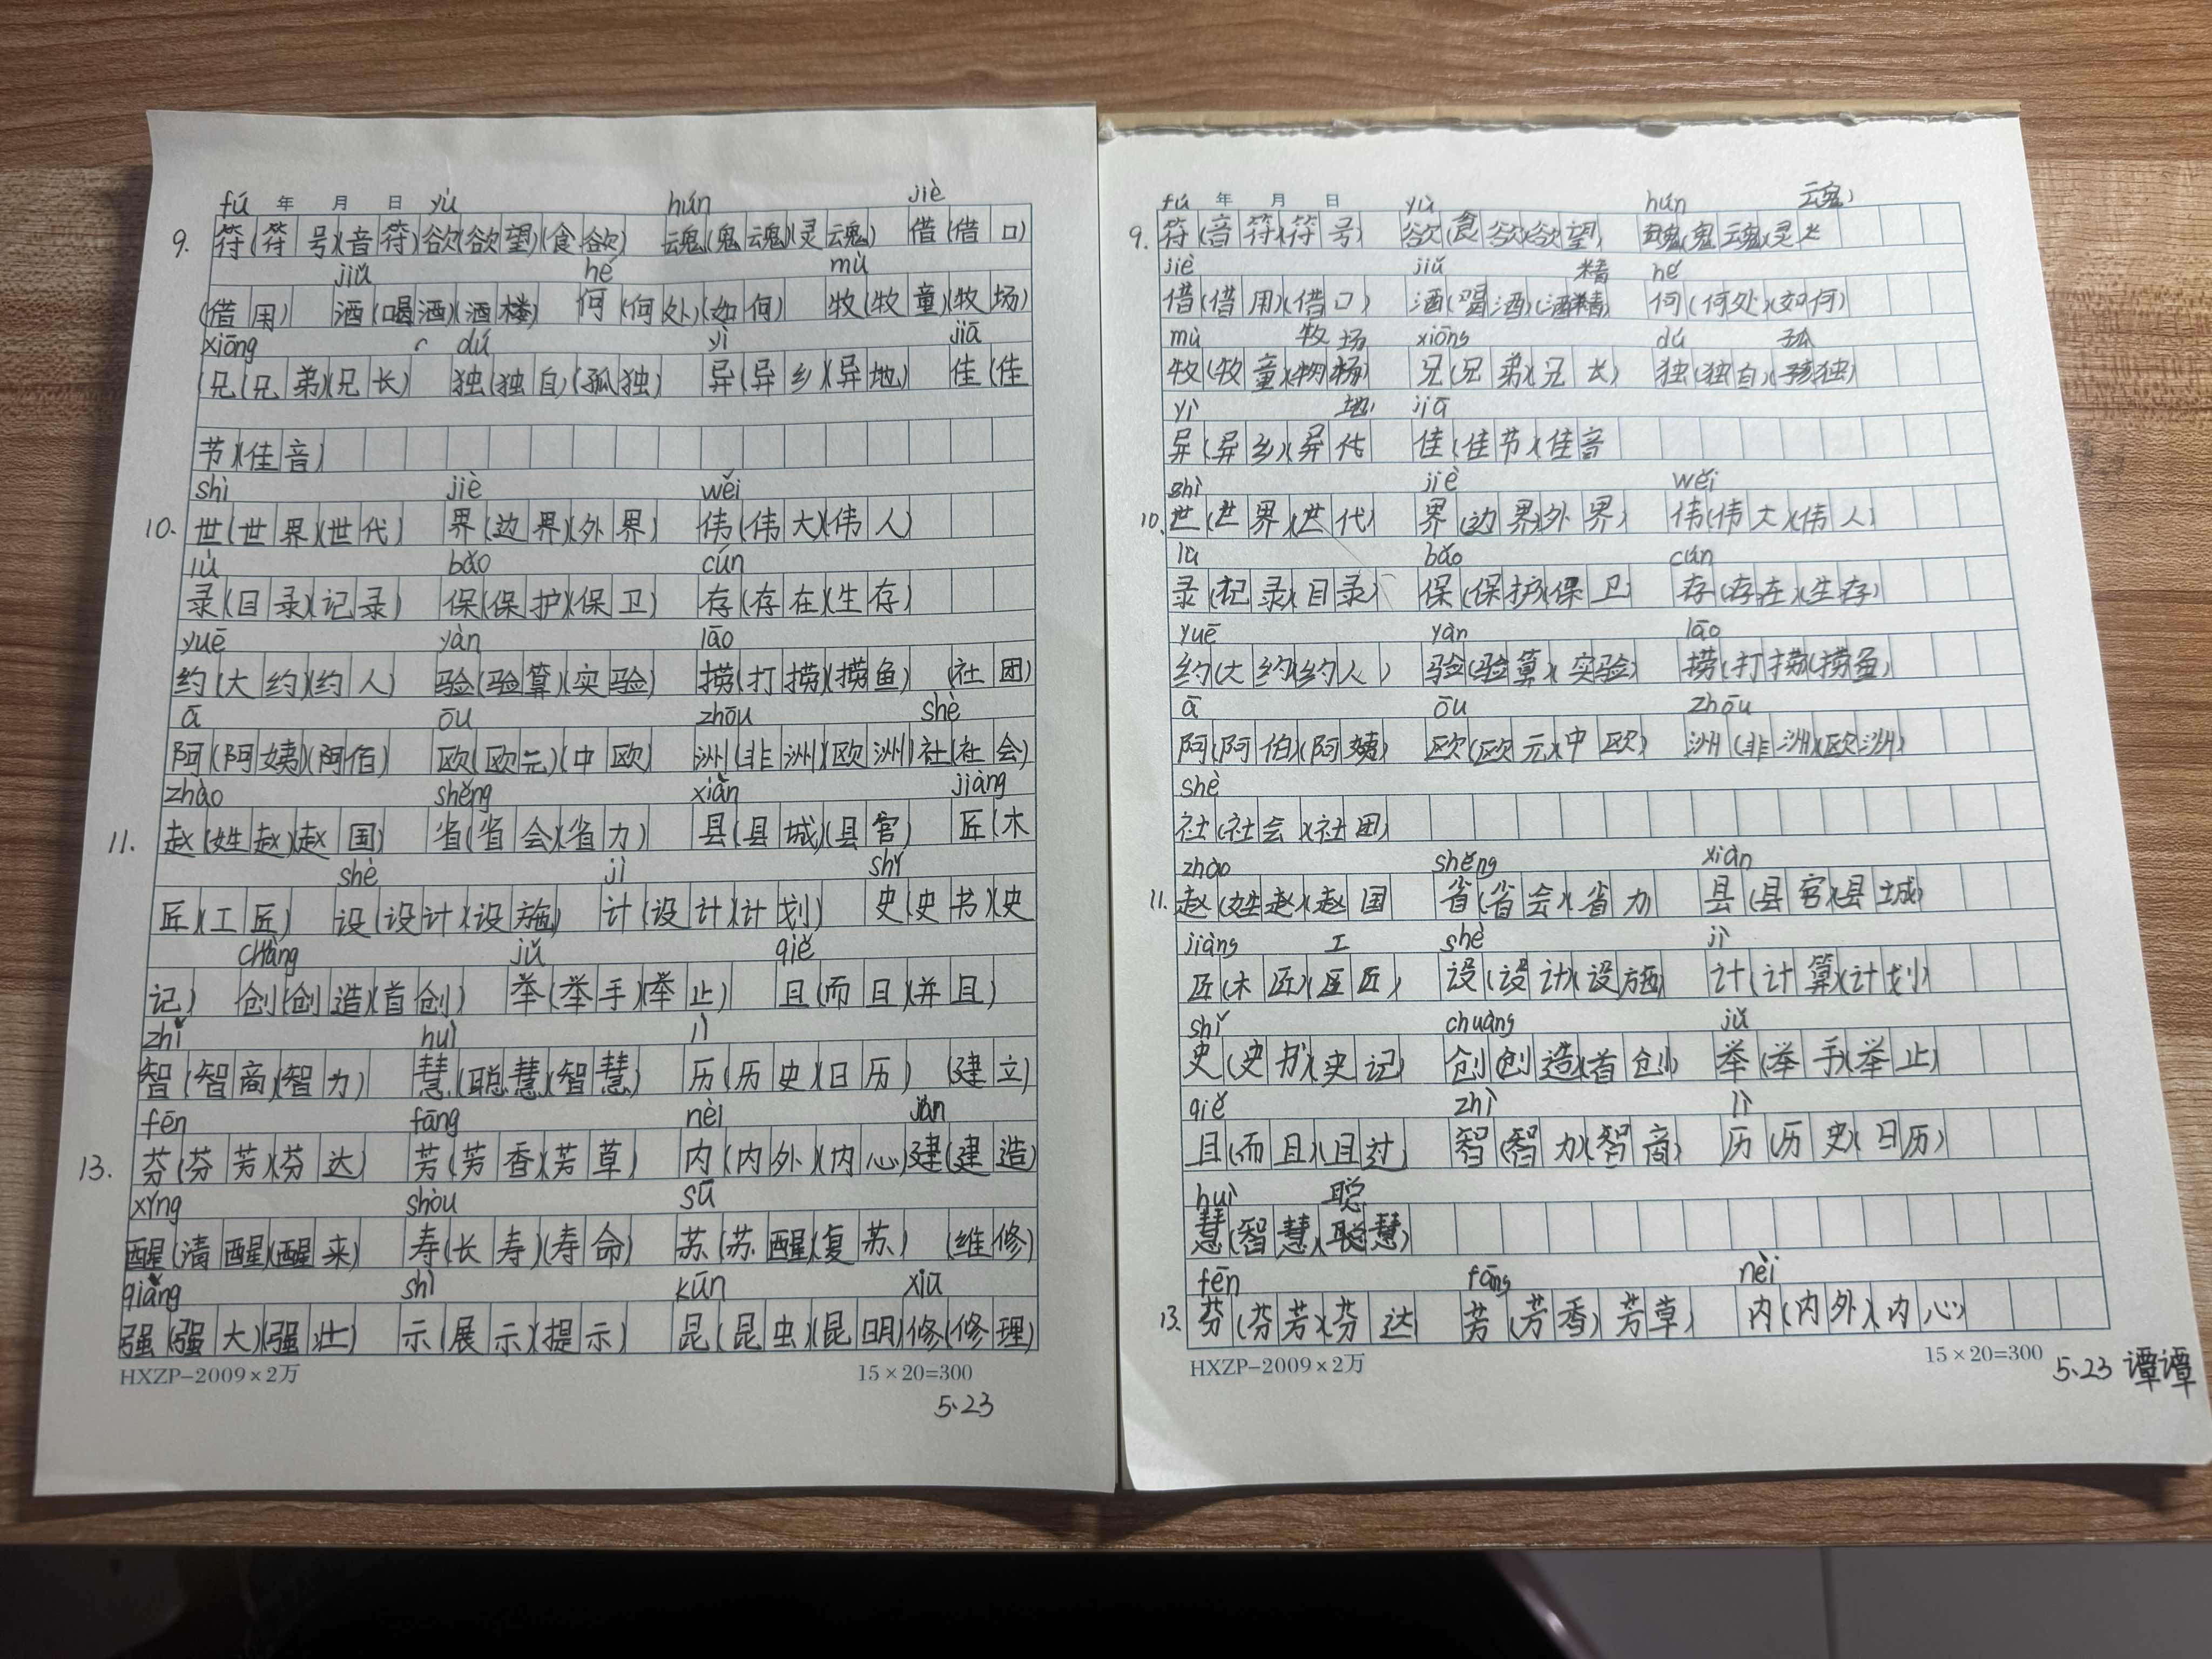 fú 年 月 日 yù hún jiè
9. 符(符号)(音符) 欲(欲望)(食欲) 魂(鬼魂)(灵魂) 借(借口)
jiǔ hé mù
(借用) 酒(喝酒)(酒楼) 何(何处)(如何) 牧(牧童)(牧场)
xiōng dú yì jiā
(兄(兄弟)(兄长) 独(独自)(孤独) 异(异乡)(异地) 佳(佳
节)(佳音)
shì jiè wěi
10. 世(世界)(世代) 界(边界)(外界) 伟(伟大)(伟人)
lù bǎo cún
录(目录)(记录) 保(保护)(保卫) 存(存在)(生存)
yuē yàn lāo
约(大约)(约人) 验(验算)(实验) 捞(打捞)(捞鱼) (社团)
ā ōu zhōu shè
阿(阿姨)(阿伯) 欧(欧元)(中欧) 洲(非洲)(欧洲) 社(社会)
zhào shěng xiàn jiàng
11. 赵(姓赵)(赵国) 省(省会)(省力) 县(县城)(县官) 匠(木
shè jì shǐ
匠)(工匠) 设(设计)(设施) 计(设计)(计划) 史(史书)(史
chàng jǔ qiě
记) 创(创造)(首创) 举(举手)(举止) 且(而且)(并且)
zhǐ huì lì
智(智商)(智力) 慧(聪慧)(智慧) 历(历史)(日历) (建立)
fēn fāng nèi jiàn
13. 芬(芬芳)(芬达) 芳(芳香)(芳草) 内(内外)(内心) 建(建造)
xǐng shòu sū
醒(清醒)(醒来) 寿(长寿)(寿命) 苏(苏醒)(复苏) (维修)
qiǎng shì kūn xiū
强(强大)(强壮) 示(展示)(提示) 昆(昆虫)(昆明) 修(修理)
HXZP-2009×2万 15×20=300
5.23
fú 年 月 日 yù hún 魂)
9. 符(音符)(符号) 欲(食欲)(欲望) 魂(鬼魂)(灵
jiè jiǔ 精 hé
借(借用)(借口) 酒(喝酒)(酒精) 何(何处)(如何)
mù 牧 场 xiōng dú 孤
牧(牧童)( 兄(兄弟)(兄长) 独(独自)(孩独)
yì 地) jiā
异(异乡)(异代 佳(佳节)(佳音
shì jiè wěi
10. 世(世界)(世代) 界(边界)(外界) 伟(伟大)(伟人)
lù bǎo cún
录(记录)(目录) 保(保护)(保卫) 存(存在)(生存)
yuē yàn lāo
约(大约)(约人) 验(验算)(实验) 捞(打捞)(捞鱼)
ā ōu zhōu
阿(阿伯)(阿姨) 欧(欧元)(中欧) 洲(非洲)(欧洲)
shè
社(社会)(社团)
zhào shěng xiàn
11. 赵(姓赵)(赵国 省(省会)(省力 县(县官)(县城)
jiàng 工 shè jì
匠(木匠)( 匠) 设(设计)(设施) 计(计算)(计划)
shǐ chuàng jǔ
史(史书)(史记) 创(创造)(首创) 举(举手)(举止)
qiě zhì lì
且(而且)(且过) 智(智力)(智商) 历(历史)(日历)
huì 聪
慧(智慧)(聪慧)
fēn fāng nèi
13. 芬(芬芳)(芬达 芳(芳香)芳草) 内(内外)(内心)
HXZP-2009×2万 15×20=300 5.23 谭谭